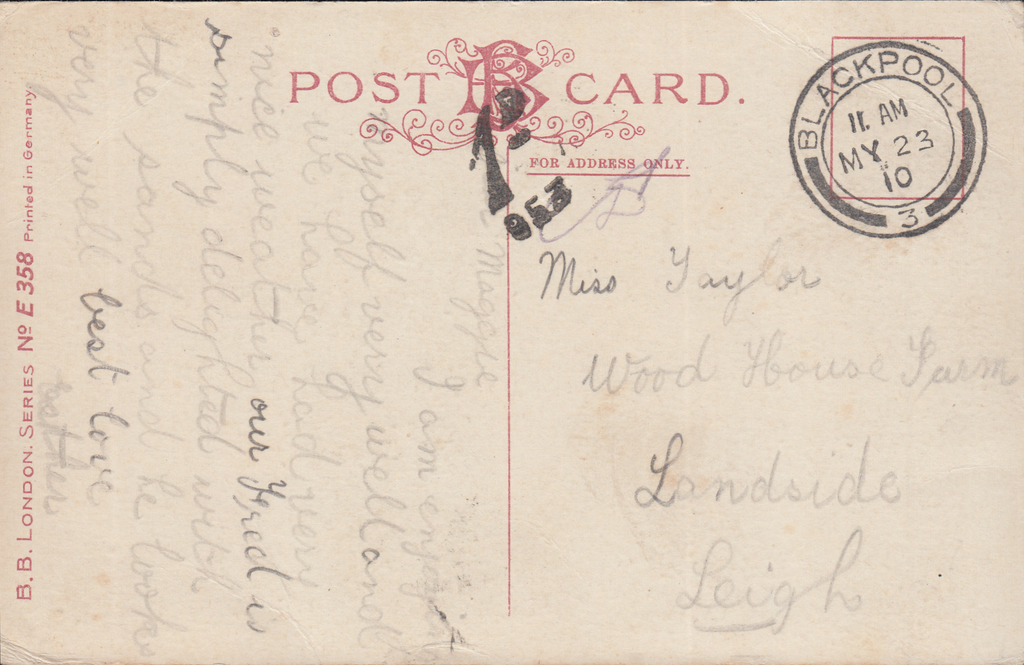 POST CARD.
FOR ADDRESS ONLY.
BLACKPOOL
11. AM
MY 23
10
3
1D
953
Miss Taylor
Wood House Farm
Landside
Leigh
Maggie
I am enjoying
myself very well and
we have had very
nice weather our Fred is
simply delighted with
the sands and he looks
very well best love
B.B. LONDON. SERIES No E 358 Printed in Germany.